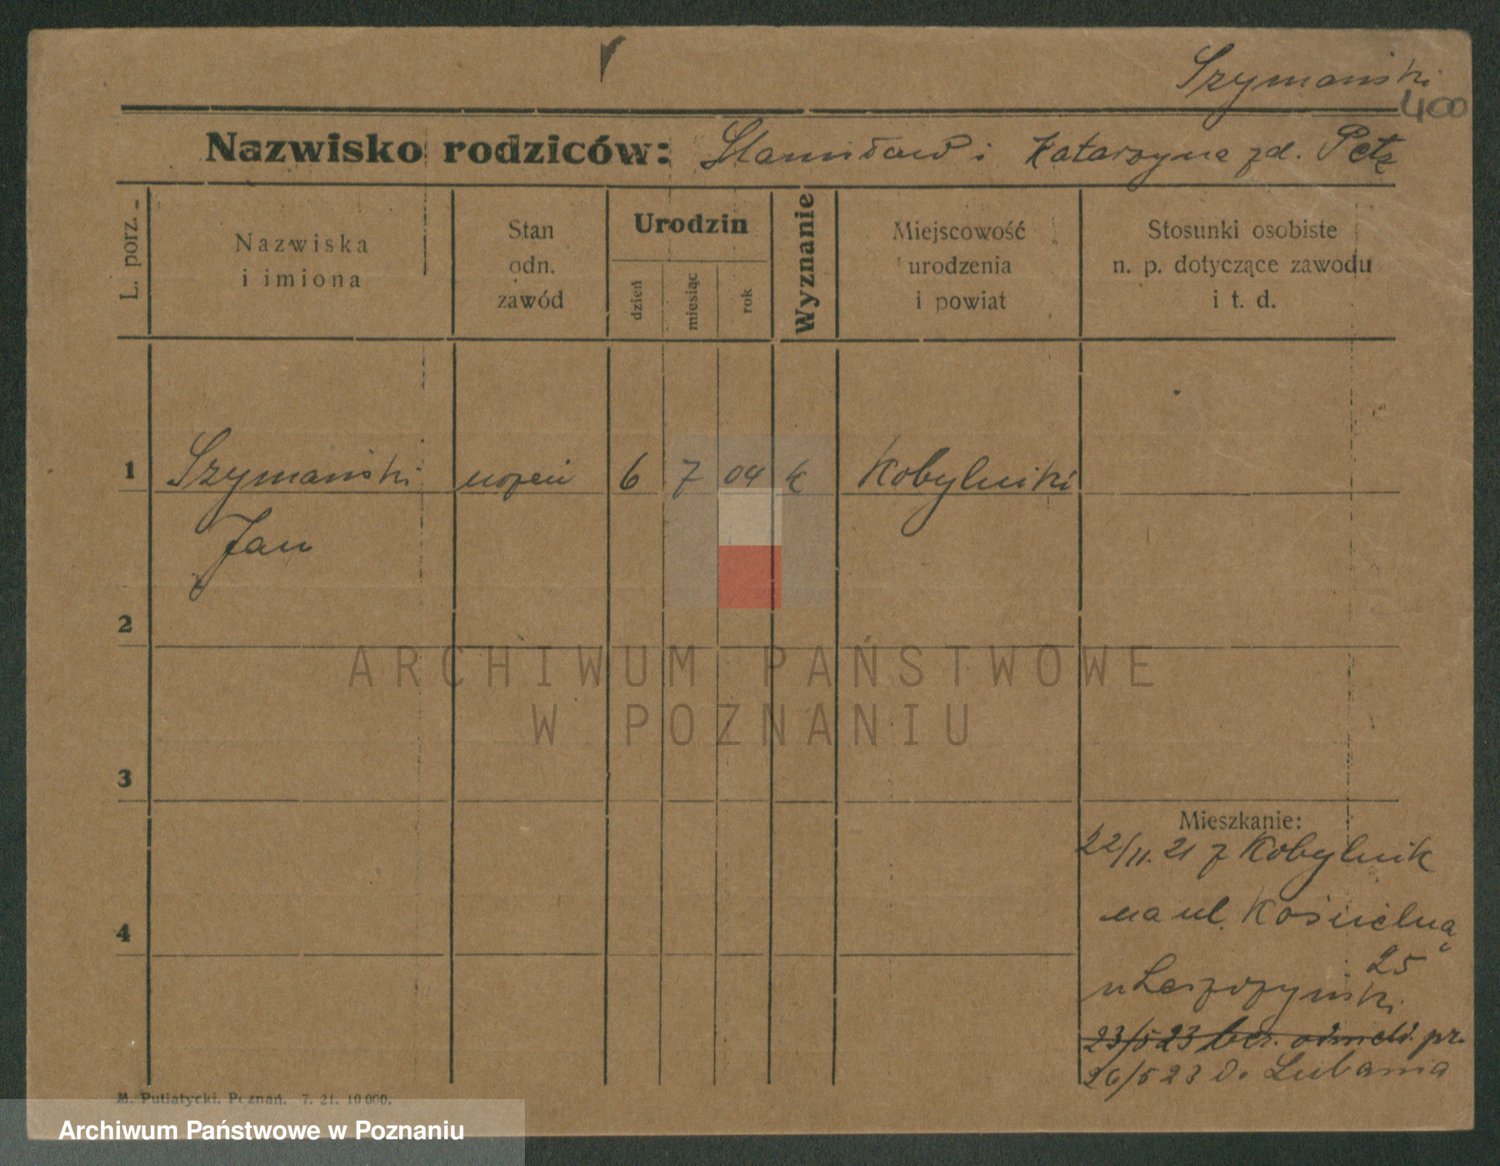 Szymański
400
Nazwisko rodziców: Stanisław i Katarzyna zd. Petz
L. porz.
Nazwiska
i imiona
Stan
odn.
zawód
Urodzin
dzień
miesiąc
rok
Wyznanie
Miejscowość
urodzenia
i powiat
Stosunki osobiste
n. p. dotyczące zawodu
i t. d.
1 Szymański uczeń 6 7 04 k Kobylniki
Jan
2
ARCHIWUM PAŃSTWOWE
W POZNANIU
3
Mieszkanie:
22/11. 21 z Kobylnik
na ul. Kościelną
4
25
u
23/5 23 odmeld. pr.
26/5 23 do Lubania
M. Putiatycki, Poznań. 7. 21. 10 000.
Archiwum Państwowe w Poznaniu